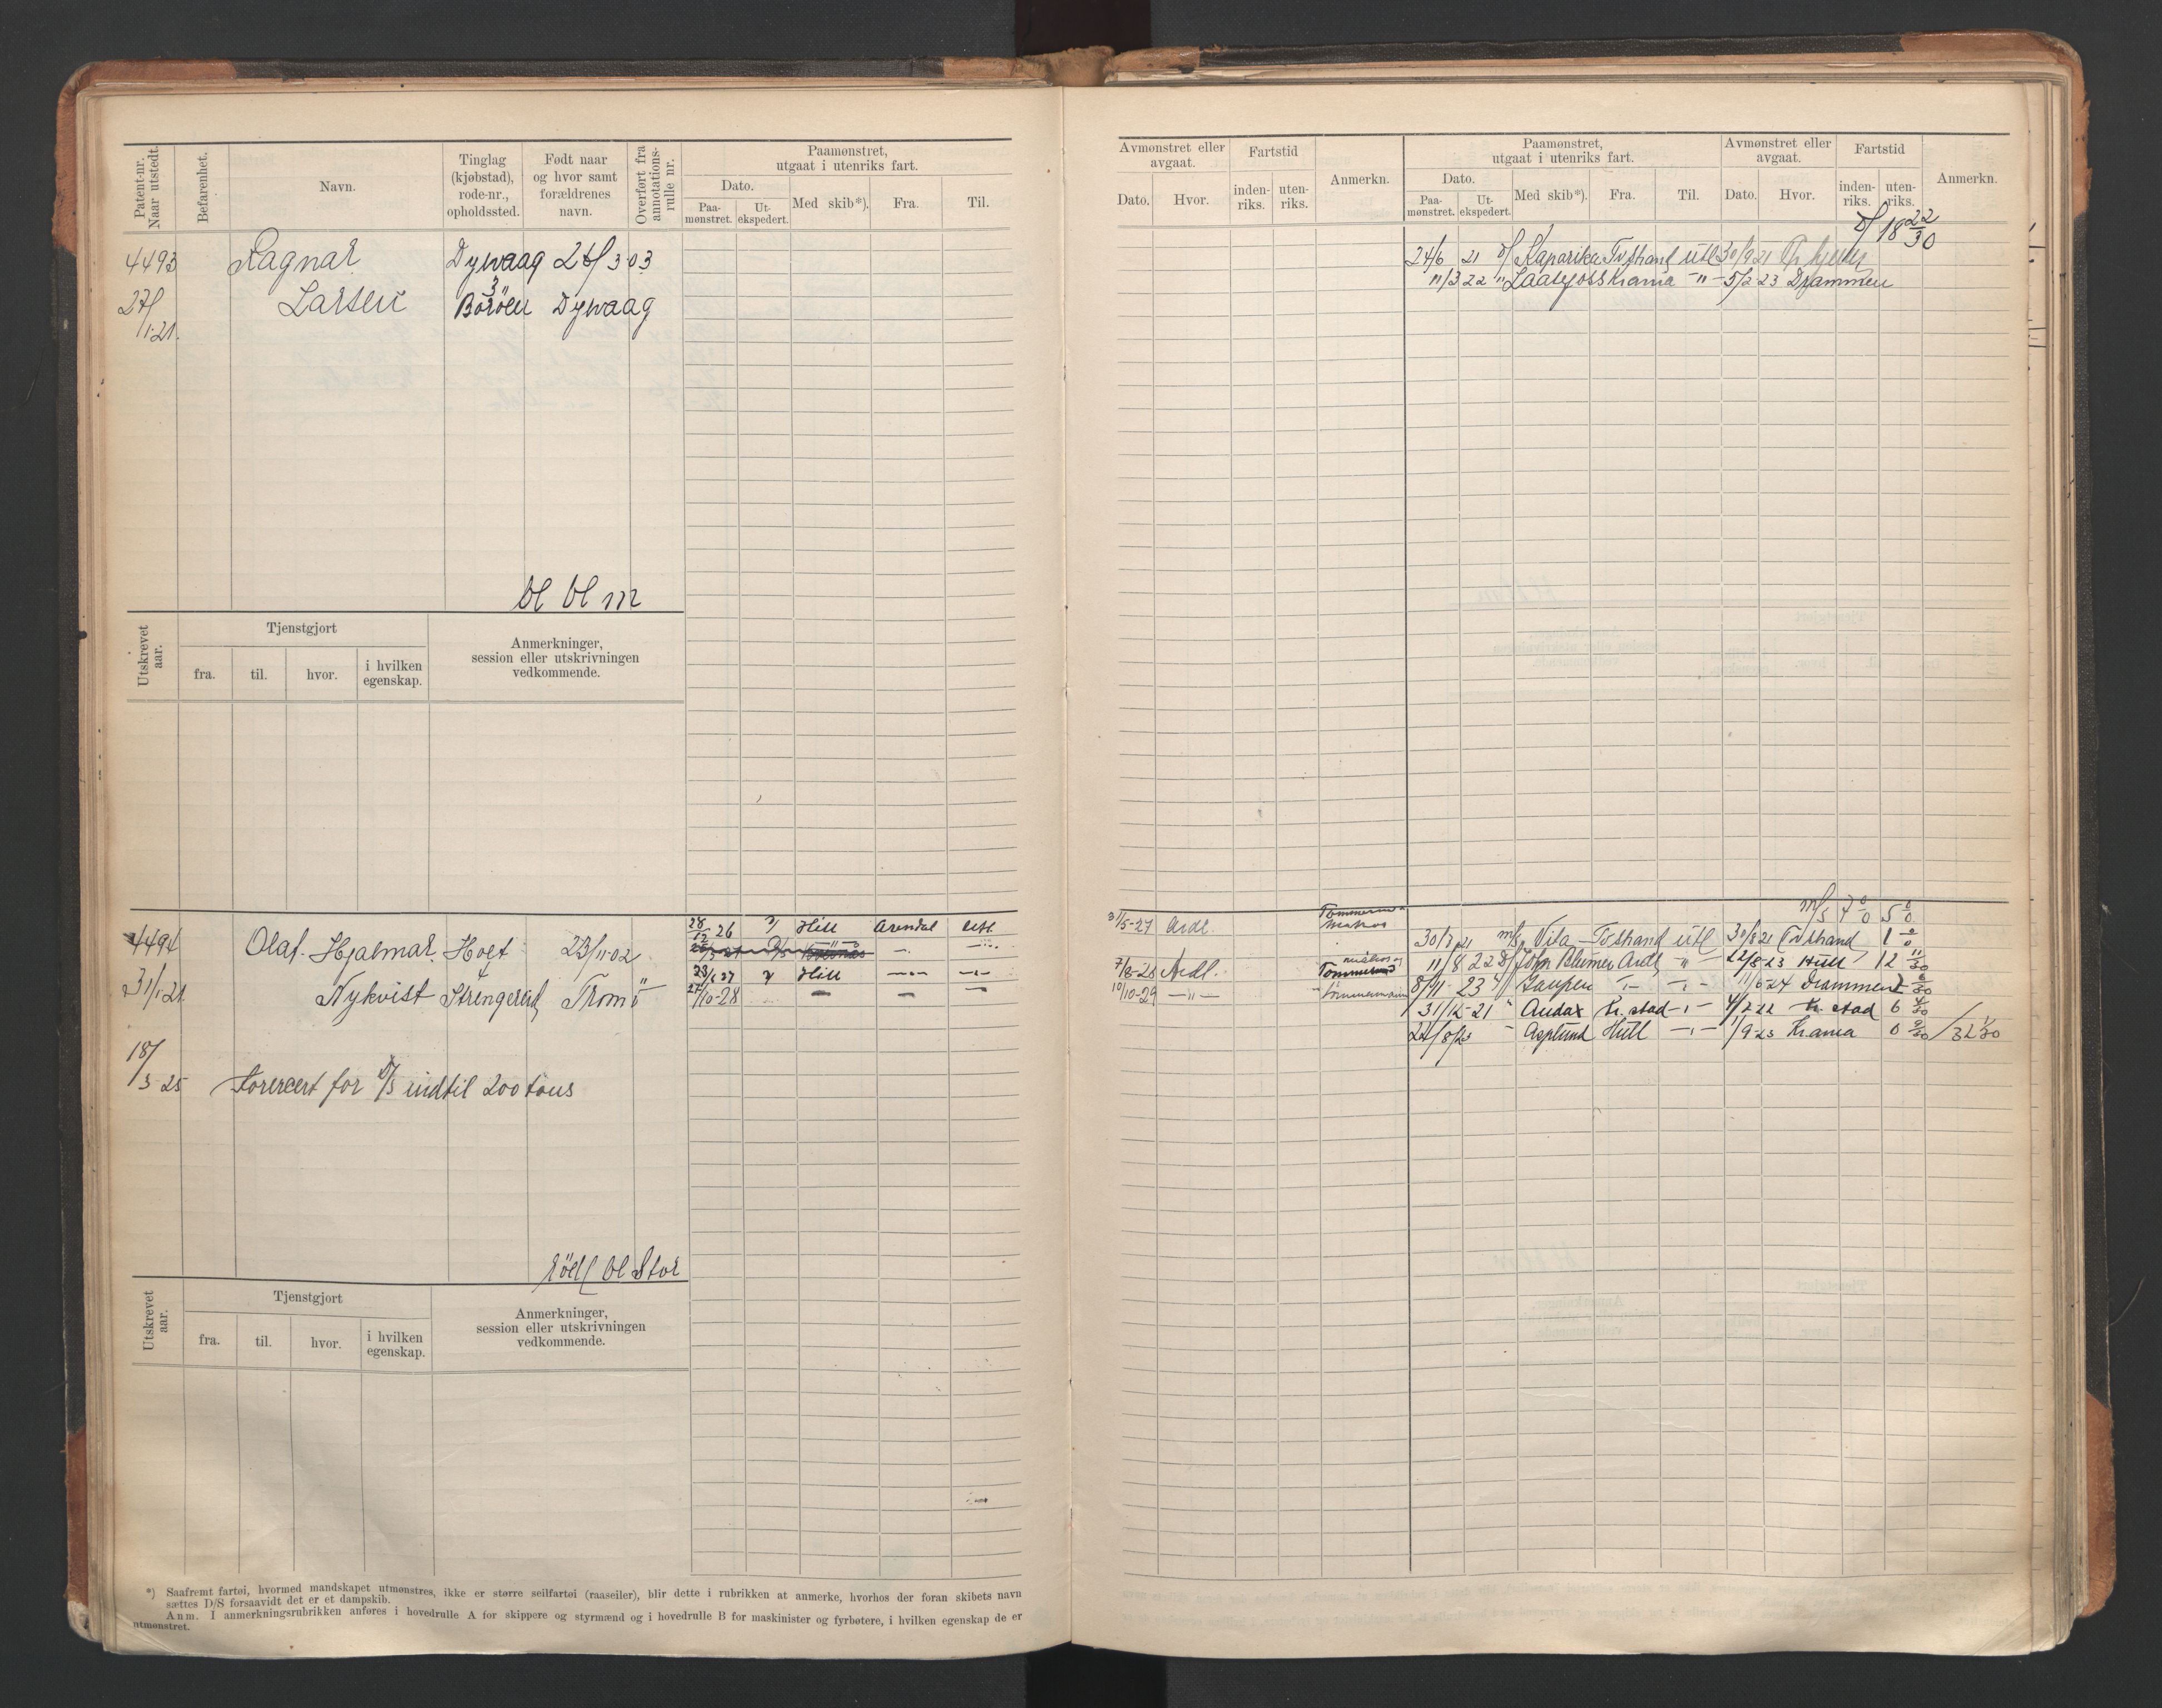 Patent-nr. Naar utstedt.
Befarenhet.
Navn.
Tinglag (kjøbstad), rode-nr., opholdssted.
Født naar og hvor samt forældrenes navn.
Overført fra annotations-rulle nr.
Paamønstret, utgaat i utenriks fart.
Dato.
Paa-mønstret.
Ut-ekspedert.
Med skib*).
Fra.
Til.
Avmønstret eller avgaat.
Dato.
Hvor.
Fartstid
inden-riks.
uten-riks.
Anmerkn.
Paamønstret, utgaat i utenriks fart.
Dato.
Paa-mønstret.
Ut-ekspedert.
Med skib*).
Fra.
Til.
Avmønstret eller avgaat.
Dato.
Hvor.
Fartstid
inden-riks.
uten-riks.
Anmerkn.
D/ 18 22/30
4493 Ragnar Dywaag 26/3 03
3"
27/1 21. Larsen Borøen Dywaag
24/6 21 D/ Kaparika Tvthand utl 30/9 21
11/3 22 " Laatefoss Krania -"- 5/2-23 Drammen
bl bl m
Utskrevet aar.
Tjenstgjort
fra.
til.
hvor.
i hvilken egenskap.
Anmerkninger, session eller utskrivningen vedkommende.
m/s 7 0/0 5 0/0
4494 Olaf Hjalmar Holt 23/11-02
4
31/1-21 Nykvist Strengereid Tromö
28/12 26 Hill Arendal utl.
23/6 27 Hill -"- -"-
27/10-28 - - -
31/5-27 Ardl. Tømmerm. Matros
7/8-28 Ardl. matros og Tømmerm
10/10-29 -"- Tømmermann
30/7 21 m/s Vita Tvthand utl 30/8 21 Tvthand 1 0/0
11/8 22 D/ John Blumer Ardl " 22/8-23 Hull 12 11/30
8/11 23 " Jaupen -"- -"- 11/6-24 Drammen
31/12-21 " Audax Fr. stad -"- 4/7-22 Fr. stad 6 4/30
24/8/23 " Asplund Hull -"- 1/9-23 Krania 0 9/30 / 32 1/30
18/3-25 Førercert for D/S indtil 200 tons
rödl bl Stor
Utskrevet aar.
Tjenstgjort
fra.
til.
hvor.
i hvilken egenskap.
Anmerkninger, session eller utskrivningen vedkommende.
*) Saafremt fartøi, hvormed mandskapet utmønstres, ikke er større seilfartøi (raaseiler), blir dette i rubrikken at anmerke, hvorhos der foran skibets navn
sættes D/S forsaavidt det er et dampskib.
Anm. I anmerkningsrubrikken anføres i hovedrulle A for skippere og styrmænd og i hovedrulle B for maskinister og fyrbøtere, i hvilken egenskap de er
utmønstret.